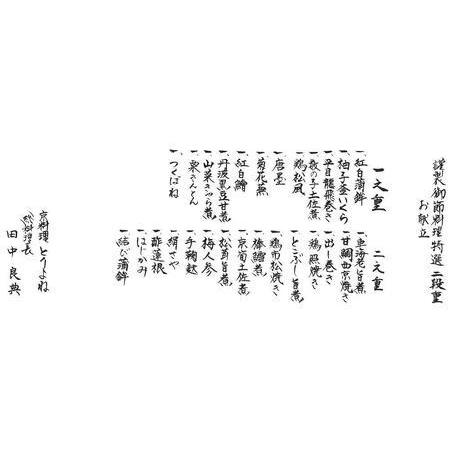 謹製御節料理特選二段重
お献立
一之重
一、紅白蒲鉾
一、柚子釜いくら
一、平目龍飛巻き
一、数の子土佐煮
一、鶏松風
一、唐墨
一、菊花蕪
一、紅白鱠
一、丹波黒豆甘煮
一、山菜きゃら煮
一、栗きんとん
一、つくばね
二之重
一、車海老旨煮
一、甘鯛西京焼き
一、出し巻き
一、鶏照焼き
一、とこぶし旨煮
一、鶏市松焼き
一、棒鱈煮
一、京筍土佐煮
一、松茸旨煮
一、梅人参
一、手鞠麩
一、絹さや
一、酢蓮根
一、はじかみ
一、結び蒲鉾
京料理とうよね
総料理長
田中良典